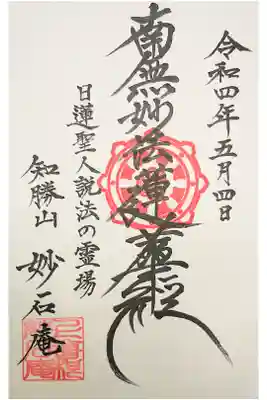 令和四年五月四日
南無妙法蓮華経
日蓮聖人説法の霊場
知勝山 妙石庵